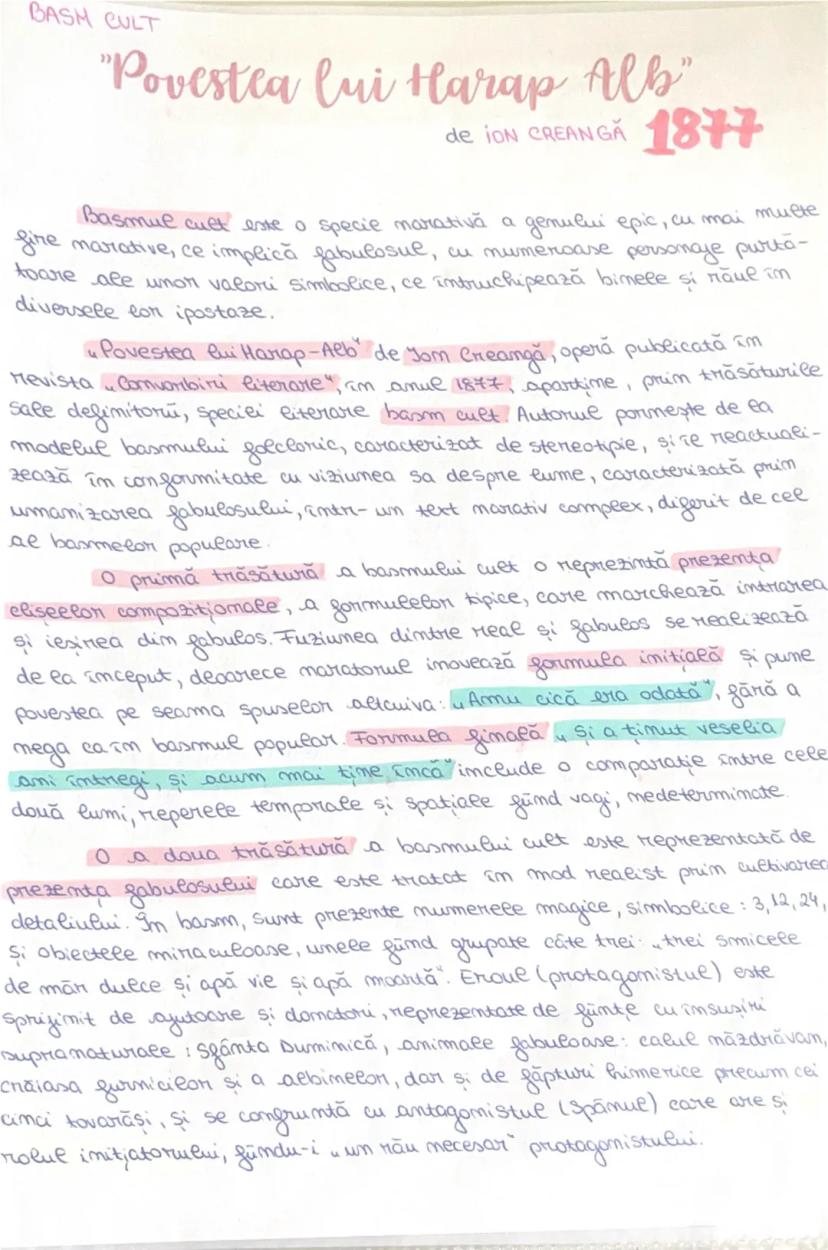 BASM CULT
"Povestea lui Harap Alb"
de ION CREANGĂ 1877
Basmul cult este o specie narativă a genului epic, cu mai multe
fire narative, ce implică fabulosul, cu numeroase personaje purtă-
toare ale unor valori simbolice, ce întruchipează binele și răul în
diversele lor ipostaze.
„Povestea lui Harap-Alb" de Ion Creangă, operă publicată în
revista „Convorbiri literare", în anul 1877, aparține, prin trăsăturile
sale definitorii, speciei literare basm cult. Autorul pornește de la
modelul basmului folcloric, caracterizat de stereotipie, și îl reactuali-
zează în conformitate cu viziunea sa despre lume, caracterizată prin
umanizarea fabulosului, într-un text narativ complex, diferit de cel
al basmelor populare.
O primă trăsătură a basmului cult o reprezintă prezența
clișeelor compoziționale, a formulelor tipice, care marchează intrarea
și ieșirea din fabulos. Fuziunea dintre real și fabulos se realizează
de la început, deoarece naratorul inovează formula inițială și pune
povestea pe seama spuselor altcuiva: „Amu cică era odată", fără a
nega ca în basmul popular. Formula finală „și a ținut veselia
ani întregi, și acum mai ține încă" include o comparație între cele
două lumi, reperele temporale și spațiale fiind vagi, nedeterminate.
O a doua trăsătură a basmului cult este reprezentată de
prezența fabulosului care este tratat în mod realist prin cultivarea
detaliului. În basm, sunt prezente numerele magice, simbolice: 3, 12, 24,
și obiectele miraculoase, unele fiind grupate câte trei: „trei smicele
de măr dulce și apă vie și apă moartă". Eroul (protagonistul) este
sprijinit de ajutoare și donatori, reprezentate de ființe cu însușiri
supranaturale: Sfânta Duminică, animale fabuloase: calul năzdrăvan,
crăiasa furnicilor și a albinelor, dar și de făpturi himerice precum cei
cinci tovarăși, și se confruntă cu antagonistul (Spânul) care are și
rolul inițiatorului, fiindu-i „un rău necesar" protagonistului.